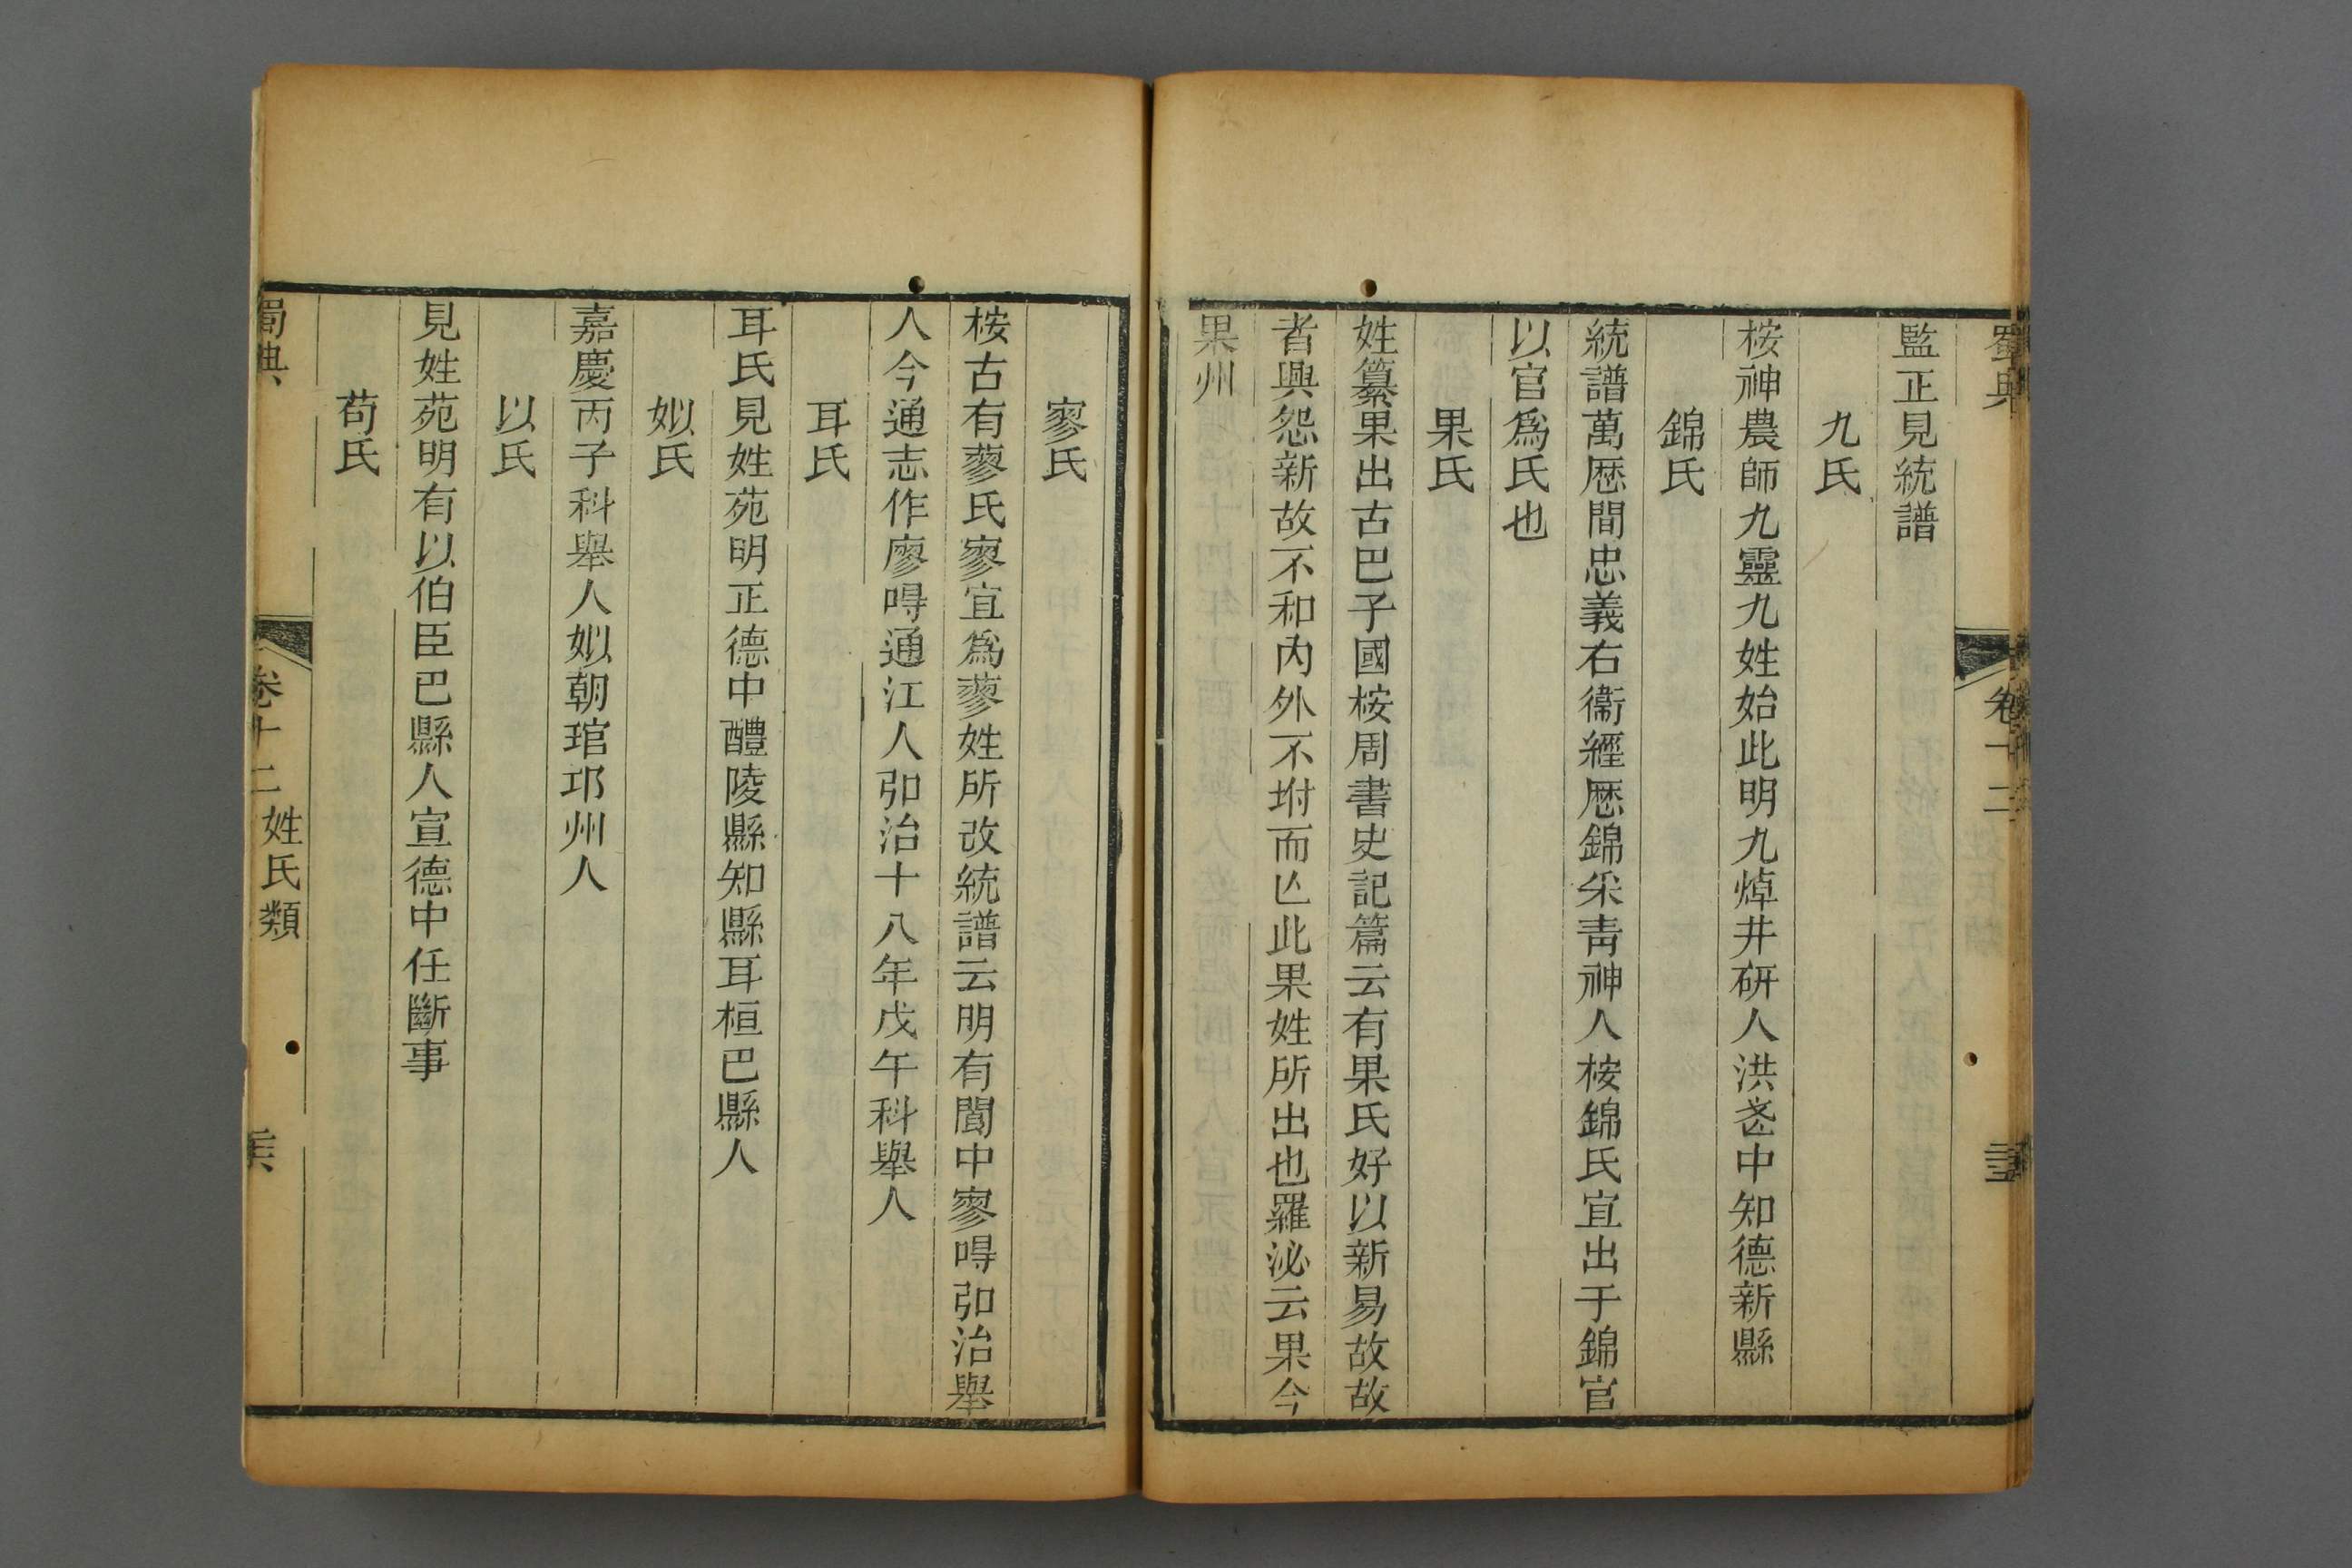 蜀典
卷十二
監正見統譜
九氏
桉神農師九靈九姓始此明九焯井研人洪武中知德新縣
錦氏
統譜萬厯間忠義右衞經厯錦采青神人桉錦氏宜出于錦官
以官爲氏也
果氏
姓纂果出古巴子國桉周書史記篇云有果氏好以新易故故
者興怨新故不和內外不坿而亾此果姓所出也羅泌云果今
果州
寥氏
桉古有蓼氏寥宜爲蓼姓所改統譜云明有閬中寥㝵弘治舉
人今通志作廖㝵通江人弘治十八年戊午科舉人
耳氏
耳氏見姓苑明正德中醴陵縣知縣耳桓巴縣人
姒氏
嘉慶丙子科舉人姒朝琯邛州人
以氏
見姓苑明有以伯臣巴縣人宣德中任斷事
苟氏
蜀典
卷十二
姓氏類